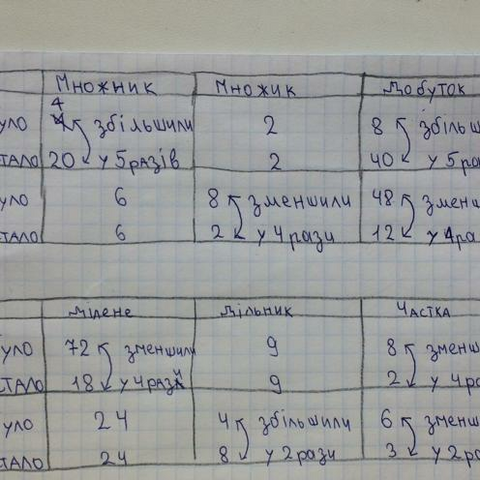 Множник Множик Добуток
УЛО 4 збільшили 2 8 збільш
ТАЛО 20 у 5 разів 2 40 у 5 ра
УЛО 6 8 зменшили 48 змен
ТАЛО 6 2 у 4 рази 12 у 4 ра
Ділене Дільник Частка
УЛО 72 зменшили 9 8 зменш
ТАЛО 18 у 4 рази 9 2 у 4 ра
УЛО 24 4 збільшили 6 зменш
ТАЛО 24 8 у 2 рази 3 у 2 раз